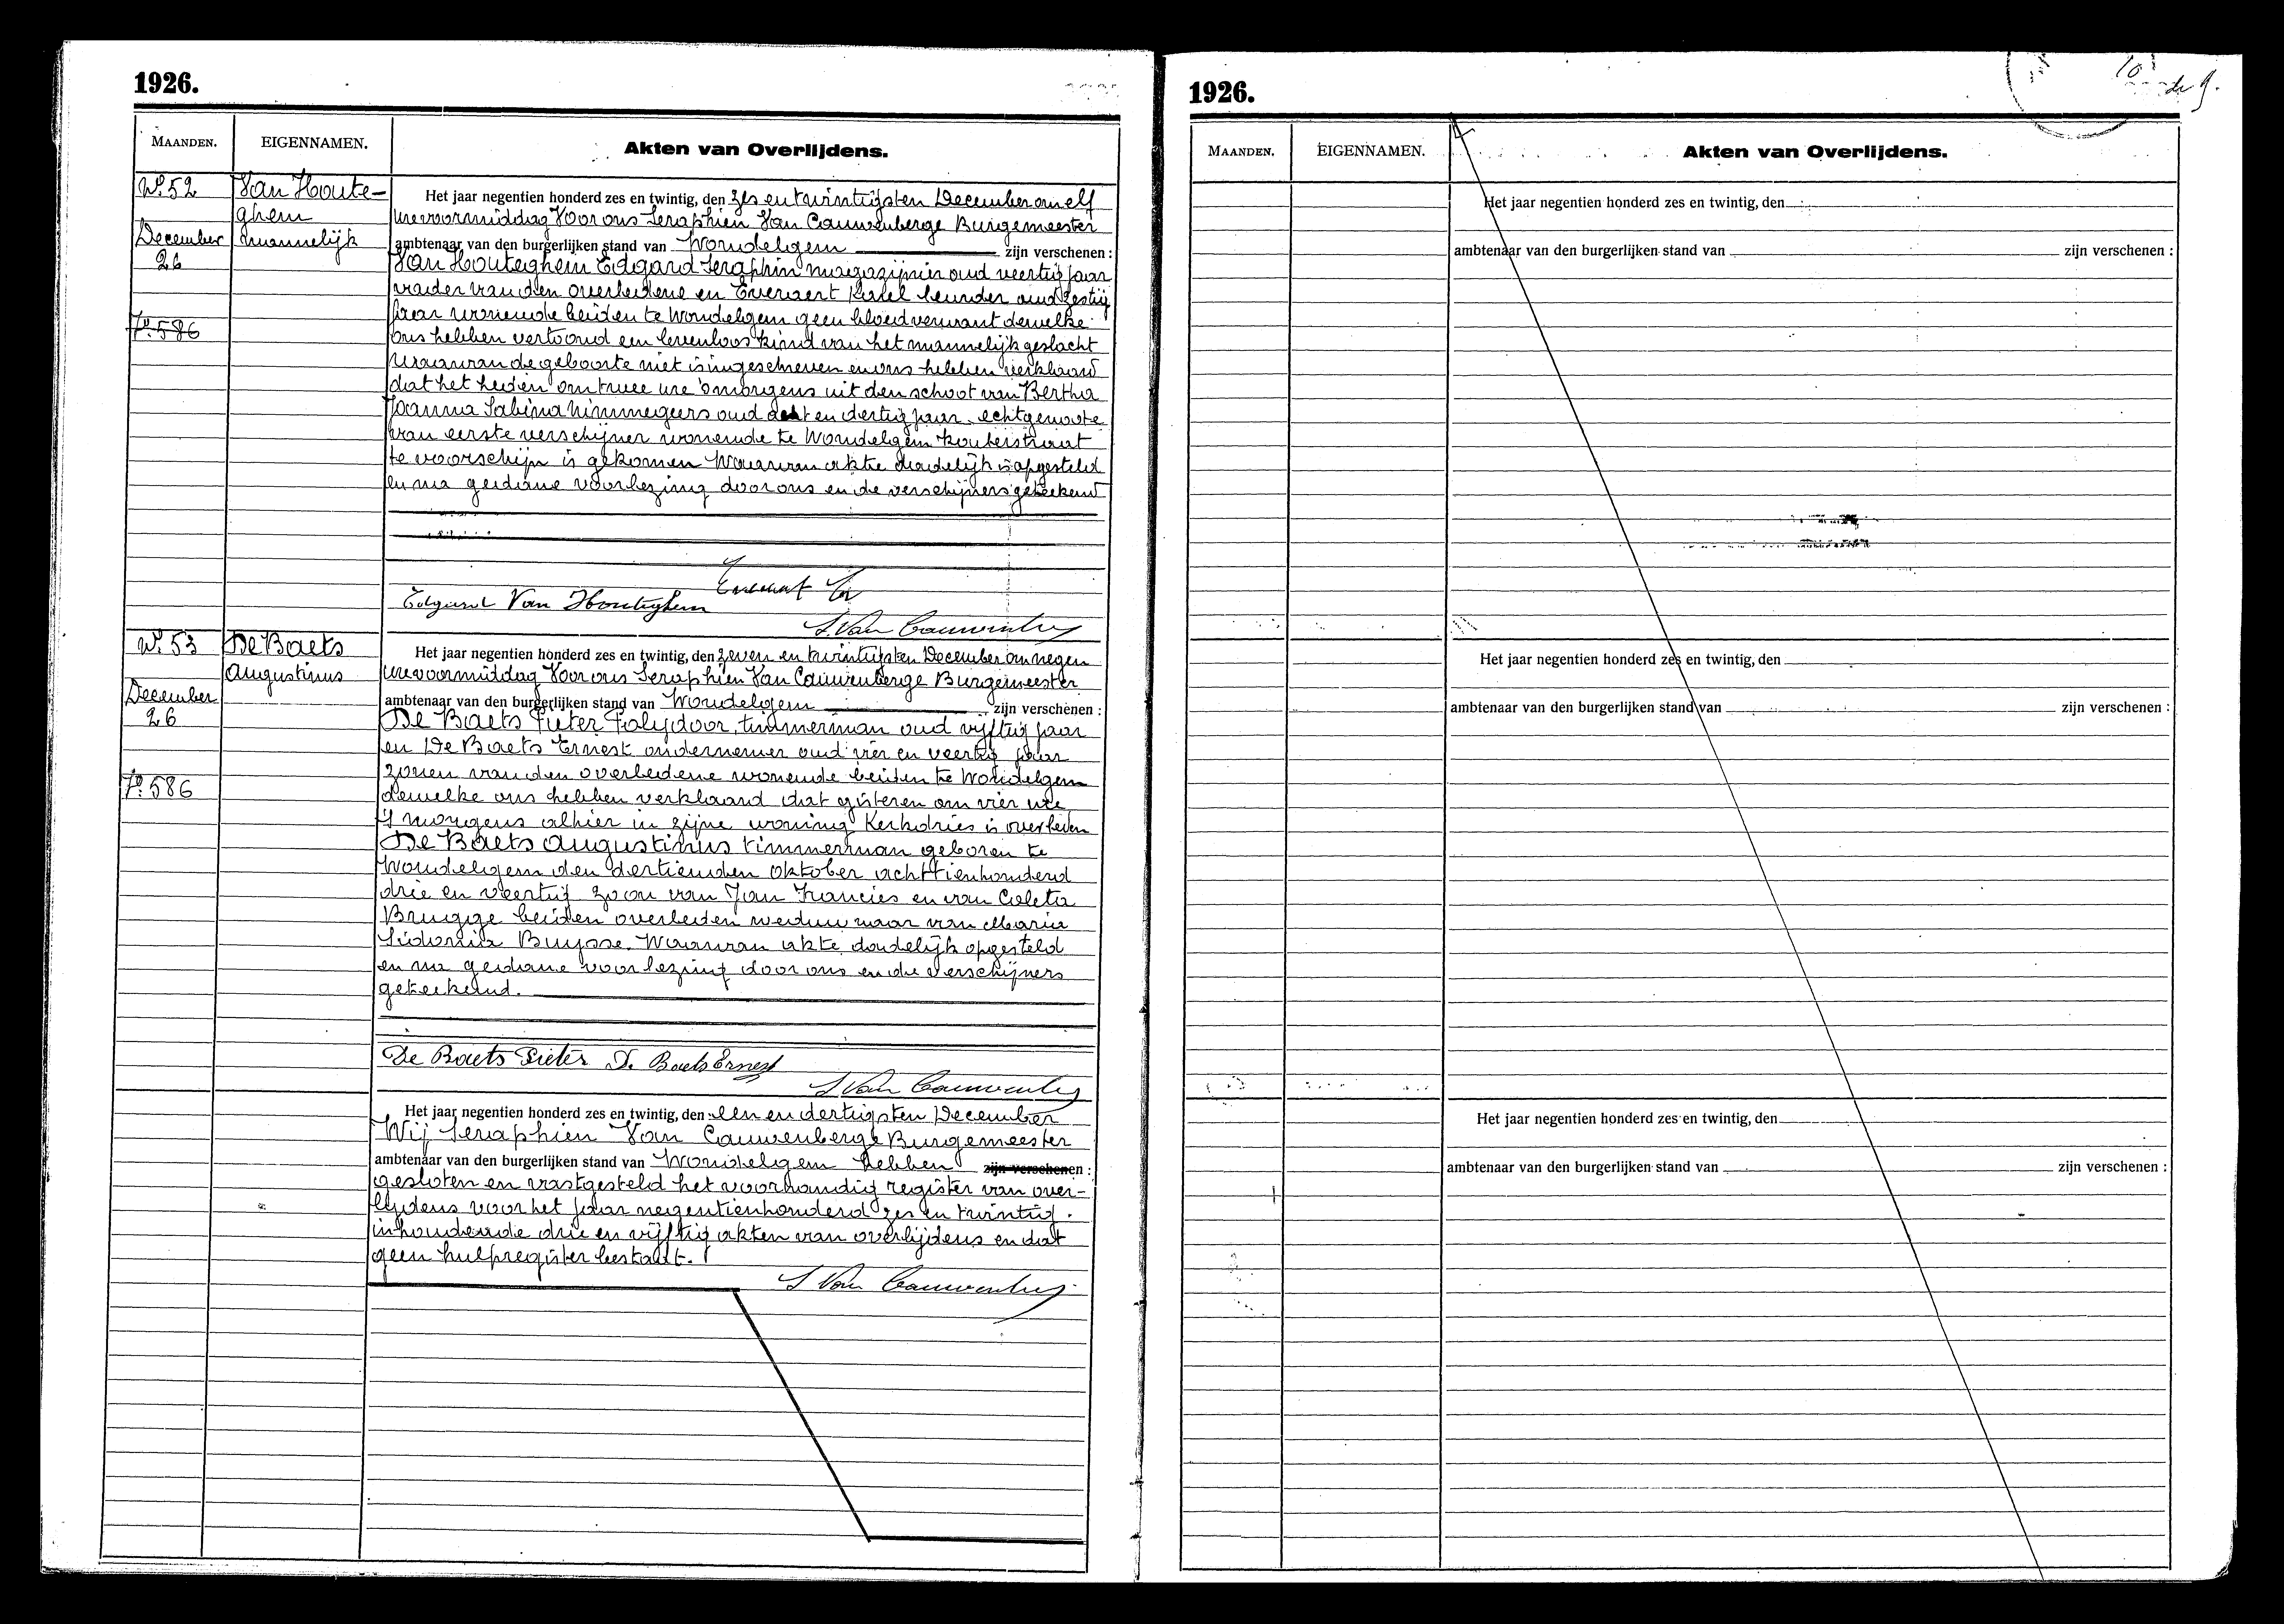 1926.
MAANDEN. EIGENNAMEN. Akten van Overlijdens.
No. 52 Van Houte-
ghem
mannelijk
December
26
Het jaar negentien honderd zes en twintig, den zes en twintigsten December om elf
ure voormiddag Voor ons Seraphien Van Cauwenberge Burgemeester
ambtenaar van den burgerlijken stand van Wondelgem zijn verschenen :
Van Houteghem Edgard Seraphin magazijnier oud veertig jaar
vader van den overledene en Everaert Karel oud zestig
jaar wonende beiden te Wondelgem geen bloedverwant dewelke
ons hebben vertoond een levenloos kind van het mannelijk geslacht
waarvan de geboorte niet is ingeschreven en ons hebben verklaard
dat het heden om twee ure 's morgens uit den schoot van Bertha
Joanna Sabina Nimmegeers oud acht en dertig jaar echtgenoote
van eerste verschijner wonende te Wondelgem Kouterstraat
te voorschijn is gekomen Waarvan akte dadelijk is opgesteld
en na gedane voorlezing door ons en de verschijners geteekend
Fo. 586
Edgard Van Houteghem
S. Van Cauwenberg
No. 53 De Baets
Augustinus
December
26
Fo. 586
Het jaar negentien honderd zes en twintig, den zeven en twintigsten December om negen
ure voormiddag Voor ons Seraphien Van Cauwenberge Burgemeester
ambtenaar van den burgerlijken stand van Wondelgem zijn verschenen :
De Baets Pieter Polydoor, timmerman oud vijftig jaar
en De Baets Ernest ondernemer oud vier en veertig jaar
zonen van den overledene wonende beiden te Wondelgem
dewelke ons hebben verklaard dat gisteren om vier ure
's morgens alhier in zijne woning Kerkdries is overleden
De Baets Augustinus timmerman geboren te
Wondelgem den dertienden oktober achttienhonderd
drie en veertig zoon van Jan Francies en van Coleta
Brugge beiden overleden weduwnaar van Maria
Sidonia Buysse. Waarvan akte dadelijk opgesteld
en na gedane voorlezing door ons en de verschijners
geteekend.
De Baets Pieter De Baets Ernest
S Van Cauwenberg
Het jaar negentien honderd zes en twintig, den een en dertigsten December
Wij Seraphien Van Cauwenberge Burgemeester
ambtenaar van den burgerlijken stand van Wondelgem hebben zijn verschenen :
gesloten en vastgesteld het voorhandig register van over-
lijdens voor het jaar negentienhonderd zes en twintig.
inhoudende drie en vijftig akten van overlijdens en dat
geen hulpregister bestaat.
S Van Cauwenberg
1926.
MAANDEN. EIGENNAMEN. Akten van Overlijdens.
Het jaar negentien honderd zes en twintig, den
ambtenaar van den burgerlijken stand van zijn verschenen :
Het jaar negentien honderd zes en twintig, den
ambtenaar van den burgerlijken stand van zijn verschenen :
Het jaar negentien honderd zes en twintig, den
ambtenaar van den burgerlijken stand van zijn verschenen :